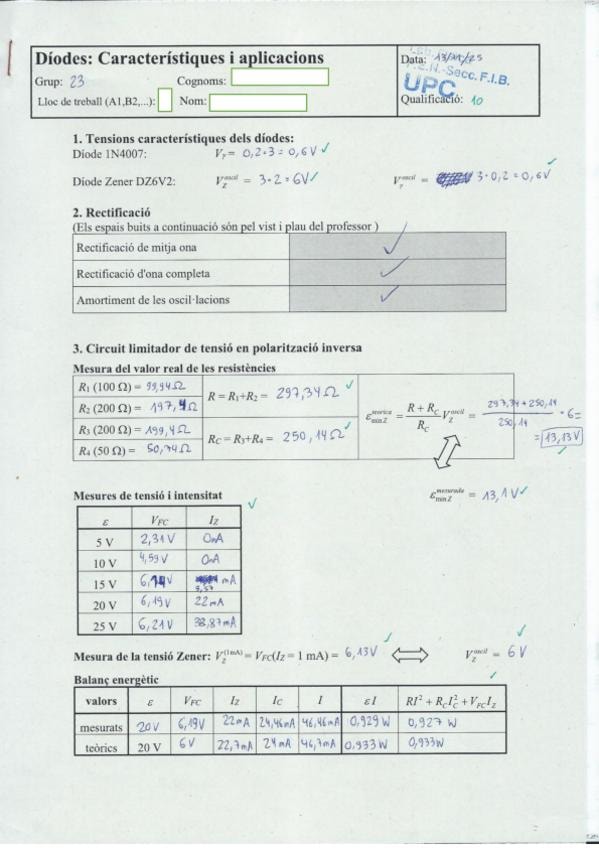 Díodes: Característiques i aplicacions
Data: 13/11/25
Grup: 23 Cognoms:
E.E.N.-Secc. F.I.B.
UPC
Lloc de treball (A1,B2,...): Nom:
Qualificació: 10
1. Tensions característiques dels díodes:
Díode 1N4007: Vγ = 0,2·3 = 0,6 V ✓
Díode Zener DZ6V2: V_Z^oscil = 3·2 = 6V ✓ V_γ^oscil = 3·0,2 = 0,6V ✓
2. Rectificació
(Els espais buits a continuació són pel vist i plau del professor )
Rectificació de mitja ona ✓
Rectificació d'ona completa ✓
Amortiment de les oscil·lacions ✓
3. Circuit limitador de tensió en polarització inversa
Mesura del valor real de les resistències
R1 (100 Ω) = 99,94Ω
R2 (200 Ω) = 197,4Ω
R = R1+R2 = 297,34 Ω ✓
R3 (200 Ω) = 199,4Ω
R4 (50 Ω) = 50,74Ω
RC = R3+R4 = 250,14Ω ✓
ε_min Z^teorica = (R + RC)/RC V_Z^oscil = (297,34 + 250,14)/250,14 · 6 =
= 13,13 V ✓
Mesures de tensió i intensitat ✓ ε_min Z^mesurada = 13,1 V ✓
ε VFC IZ
5 V 2,31 V 0mA
10 V 4,59 V 0mA
15 V 6,14 V 3,57 mA
20 V 6,19 V 22 mA
25 V 6,21 V 38,87 mA
Mesura de la tensió Zener: V_Z^(1mA) = VFC(IZ = 1 mA) = 6,13V ✓ ⇔ V_Z^oscil = 6 V ✓
Balanç energètic ✓
valors ε VFC IZ IC I ε I RI² + RC IC² + VFC IZ
mesurats 20V 6,19V 22mA 24,46mA 46,46mA 0,929 W 0,927 W
teòrics 20 V 6V 22,7mA 24mA 46,7mA 0,933W 0,933W